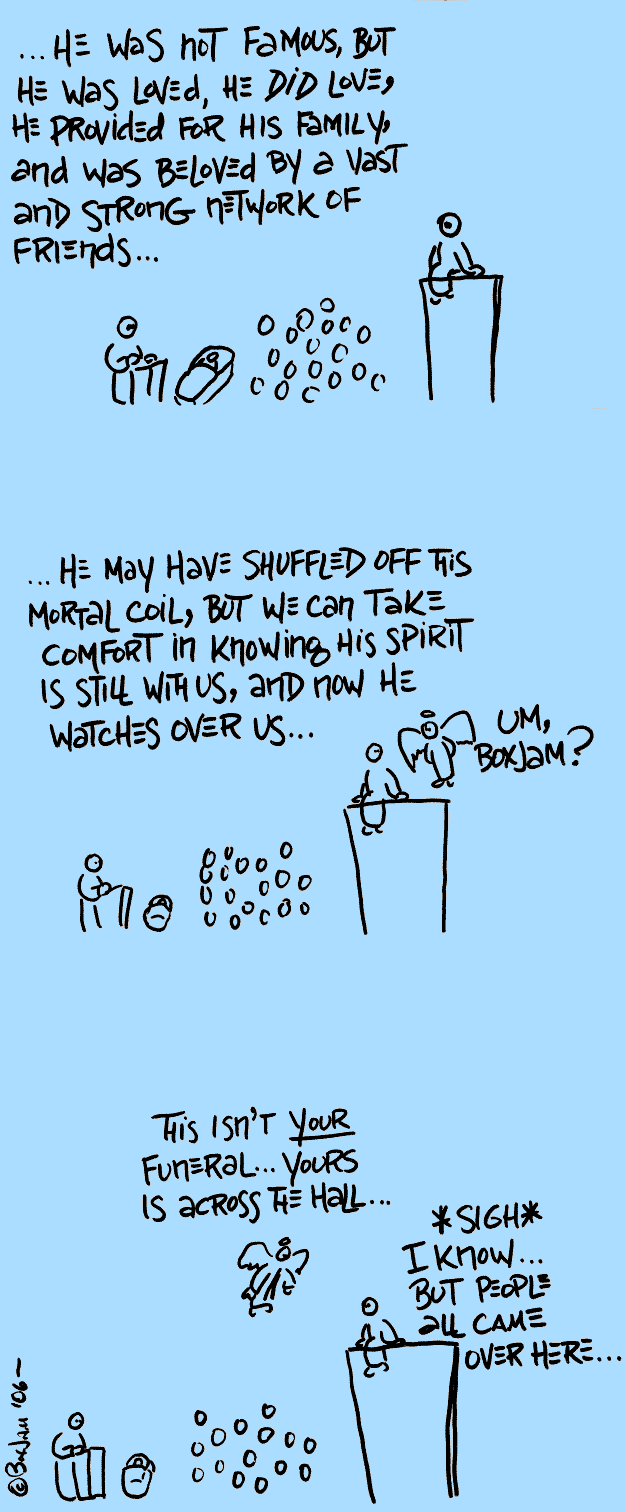 ...HE WAS NOT FAMOUS, BUT
HE WAS LOVED, HE DID LOVE,
HE PROVIDED FOR HIS FAMILY,
AND WAS BELOVED BY A VAST
AND STRONG NETWORK OF
FRIENDS...
...HE MAY HAVE SHUFFLED OFF THIS
MORTAL COIL, BUT WE CAN TAKE
COMFORT IN KNOWING HIS SPIRIT
IS STILL WITH US, AND NOW HE
WATCHES OVER US...
UM,
BOXJAM?
THIS ISN'T YOUR
FUNERAL... YOURS
IS ACROSS THE HALL...
*SIGH*
I KNOW...
BUT PEOPLE
ALL CAME
OVER HERE...
©BOXJAM '06—